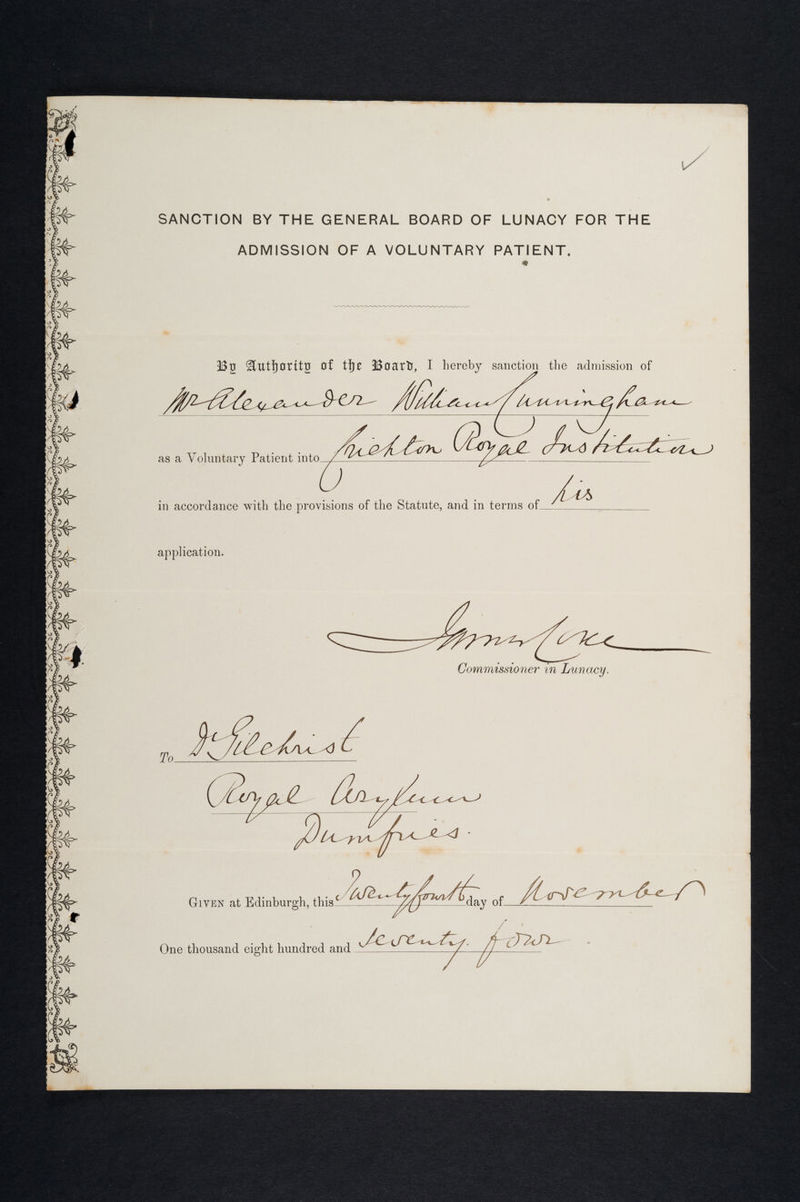 SANCTION BY THE GENERAL BOARD OF LUNACY FOR THE
ADMISSION OF A VOLUNTARY PATIENT.
By Authority of the Board, I hereby sanction the admission of
Mr Alexander William Cunningham
as a Voluntary Patient into Crichton Royal Institution
in accordance with the provisions of the Statute, and in terms of his
application.
James Coxe
Commissioner in Lunacy.
To Dr Gilchrist
Royal Asylum
Dumfries.
GIVEN at Edinburgh, this Twenty fourth day of November
One thousand eight hundred and seventy four